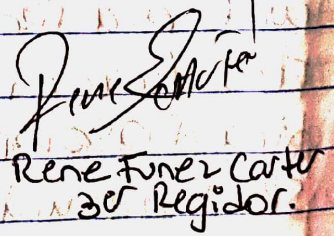 Rene Funez Carter
3er Regidor.